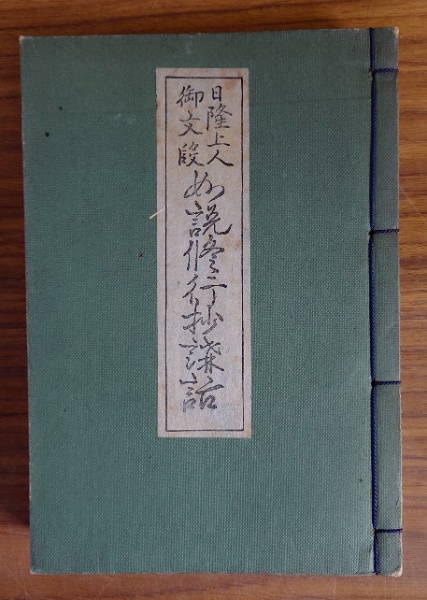 日隆上人
御文段
如説修行抄講話